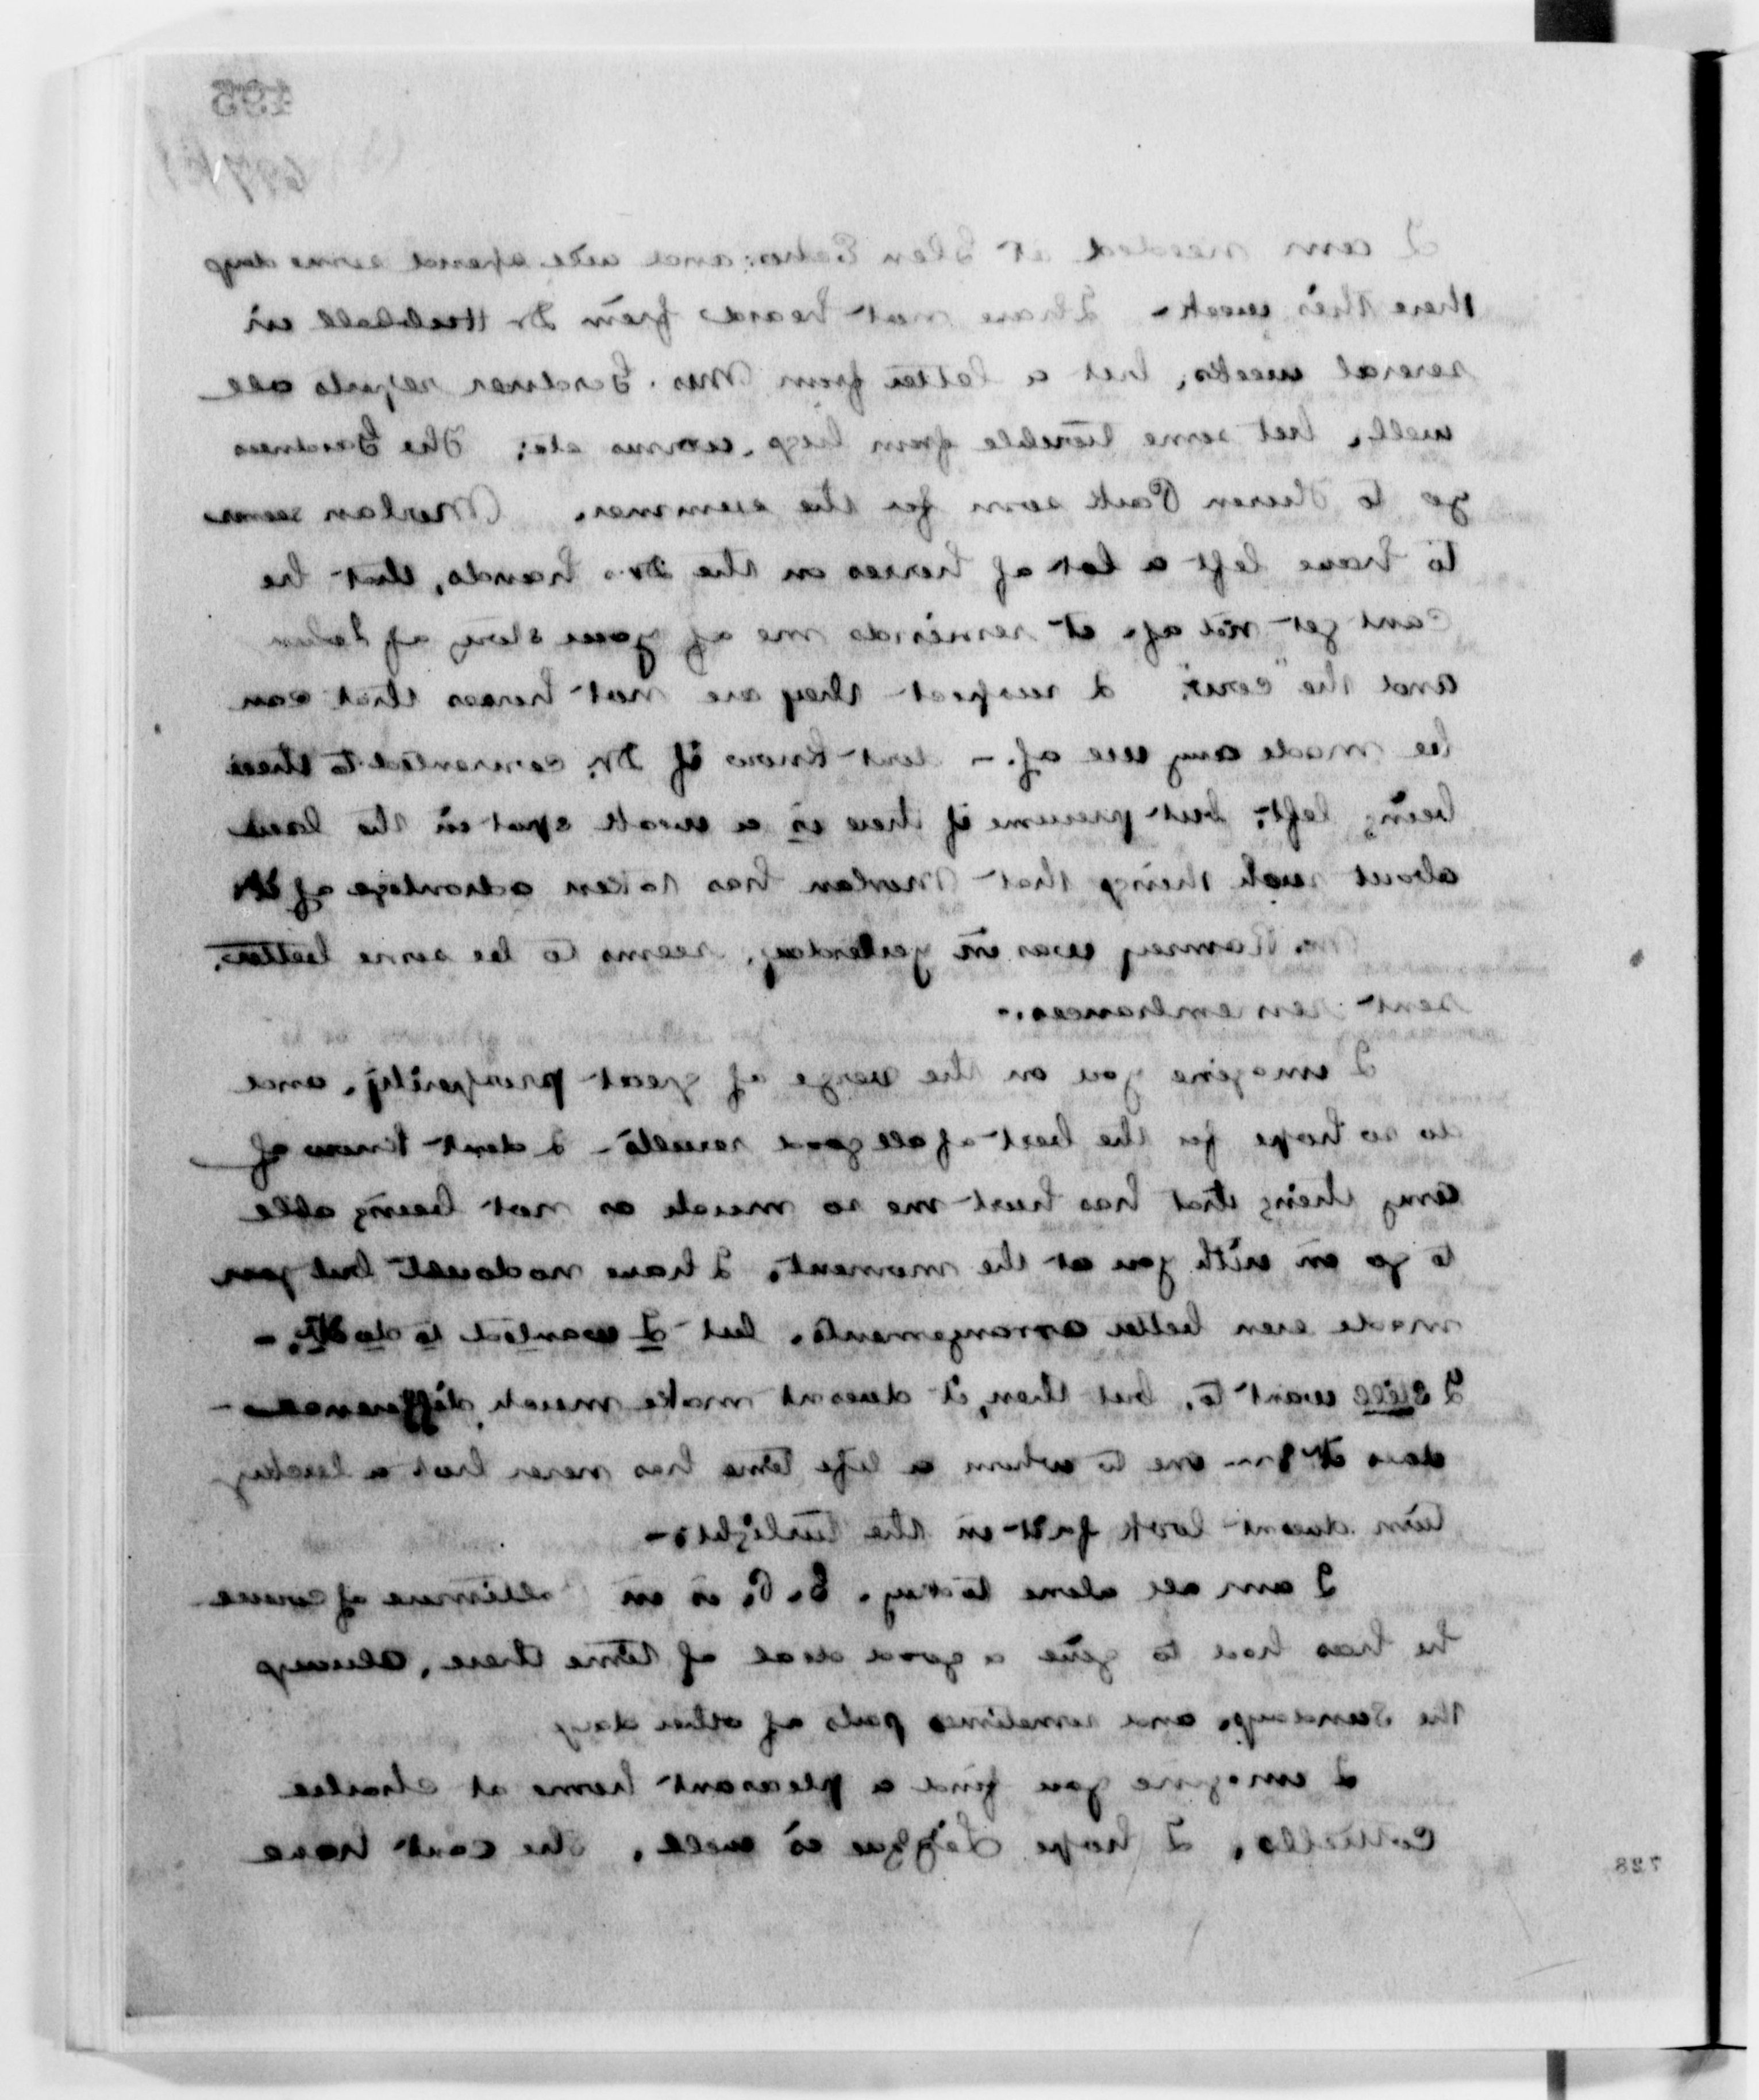 195
I am needed at Glen Echo and will spend some days
there this week - I have not heard from Dr Hubbell in
several weeks, but a letter from Mrs. Gardner reports all
well, but some trouble from hogs, worms etc; The Gardners
go to Huron Park soon for the summer. Morlan seems
to have left a lot of horses on the Drs hands, that he
cant get rid of. it reminds me of your story of John
and the "cow". I suspect they are not horses that can
be made any use of. - dont know if Dr. consented to their
being left; but presume if there is a weak spot in the land
about such things that Morlan has taken advantage of it
Mr. Ramsey was in yesterday, seems to be some better.
sent remembrances. -
I imagine you on the verge of great prosperity, and
do so hope for the best of all good results - I dont know of
any thing that has hurt me so much as not being able
to go on with you at the moment, I have no doubt but you
made even better arrangements, but I wanted to do it. -
I still want to, but then, it doesnt make much difference -
does it one to whom a life time has never but a lucky
turn doesnt look for it in the twilight -
I am all alone today. B. F. is in Baltimore of course
he has had to give a good deal of time there, always
the Sundays, and sometimes parts of other days
I imagine you find a pleasant home at Charlie
Cottrells, I hope Lizzie is well, She cant have
728